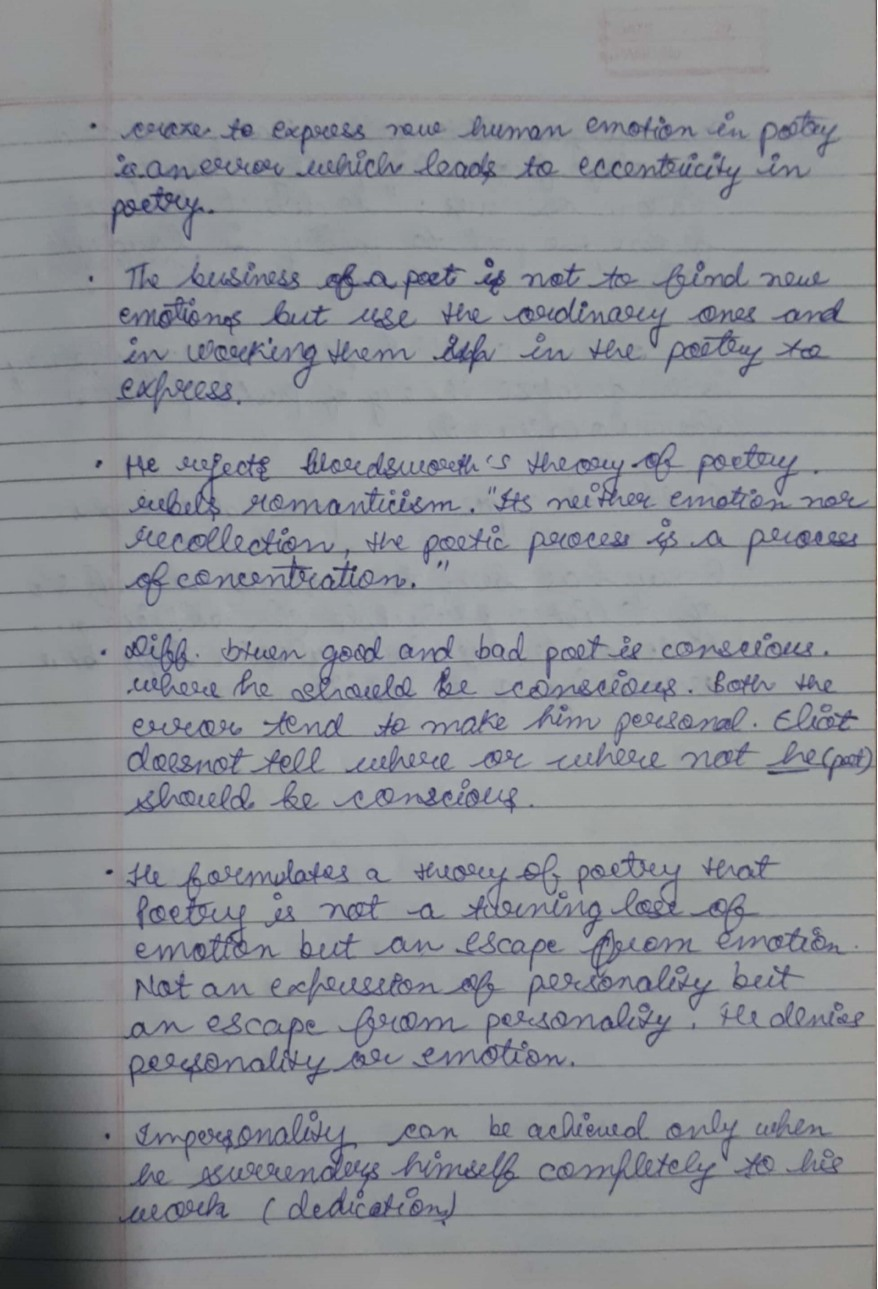 • craze to express new human emotion in poetry
is an error which leads to eccentricity in
poetry.
• The business of a poet is not to find new
emotions but use the ordinary ones and
in working them up in the poetry to
express.
• He rejects Wordsworth's theory of poetry.
rebels romanticism. "Its neither emotion nor
recollection, the poetic process is a process
of concentration."
• Diff. btween good and bad poet is conscious.
where he should be conscious. Both the
error tend to make him personal. Eliot
doesnot tell where or where not he (poet)
should be conscious.
• He formulates a theory of poetry that
Poetry is not a turning lose of
emotion but an escape from emotion.
Not an expression of personality but
an escape from personality. He denies
personality or emotion.
• Impersonality can be achieved only when
he surrenders himself completely to his
work (dedication)